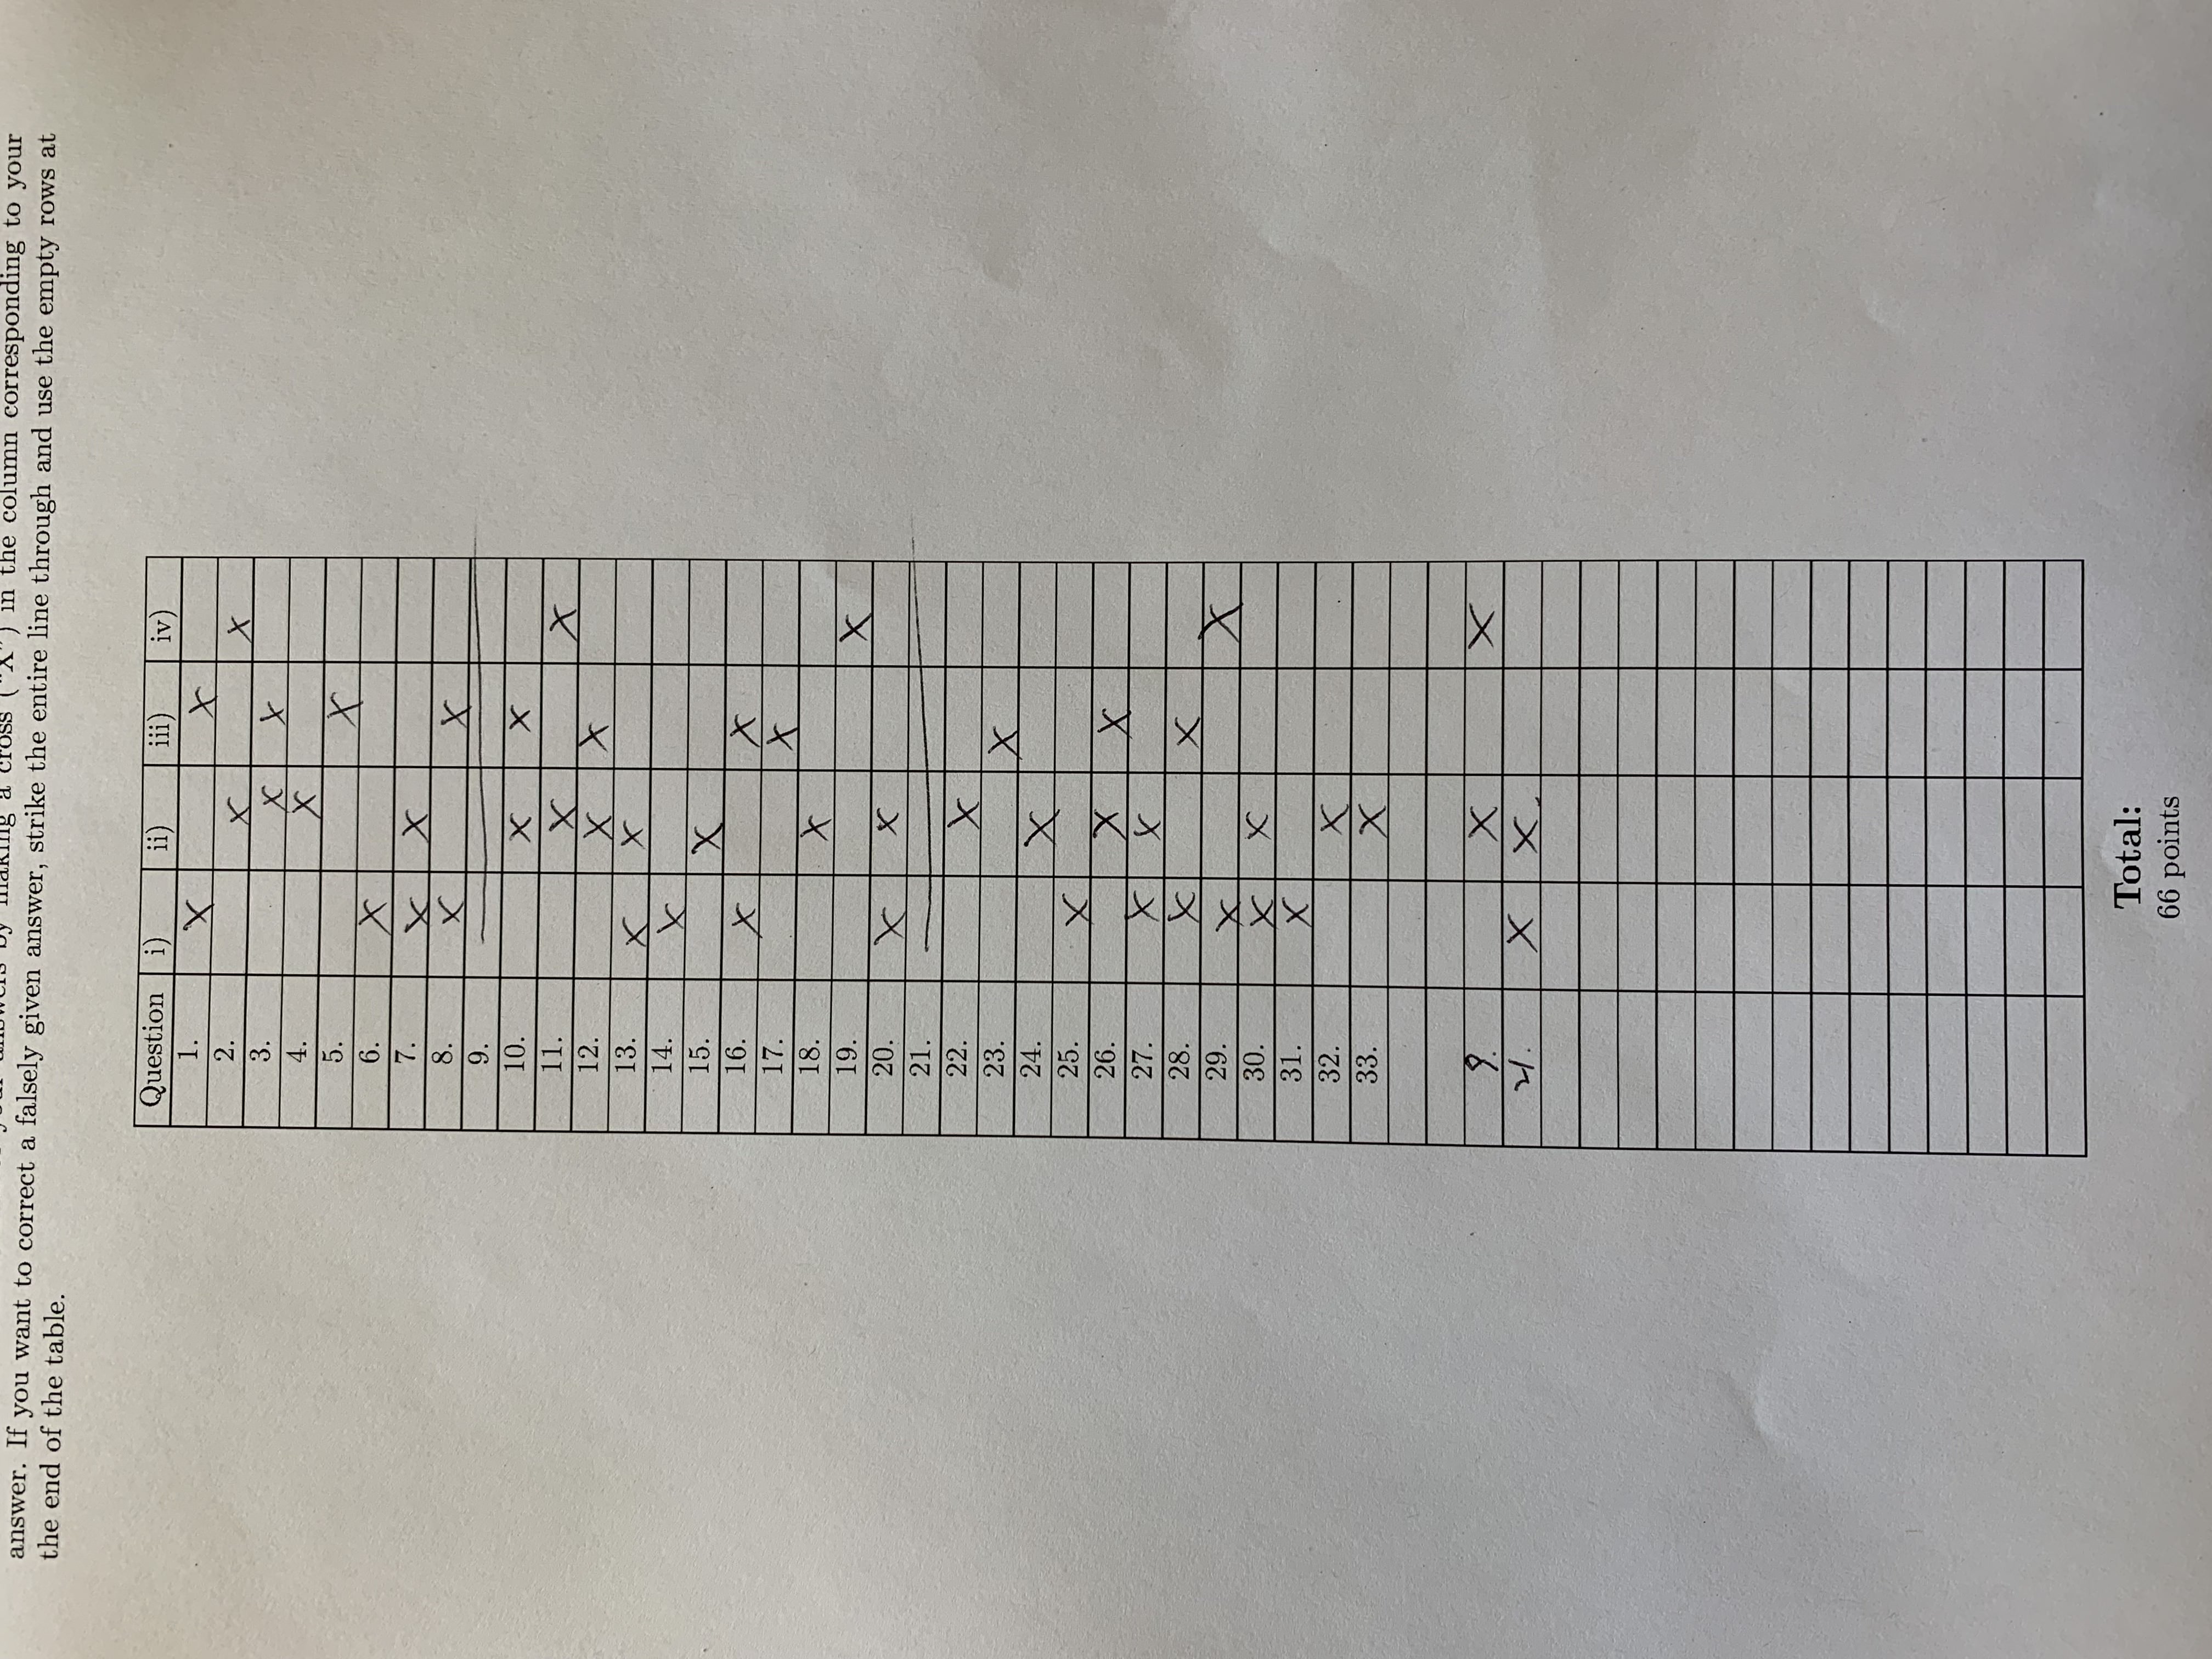 your answers by making a cross ("X") in the column corresponding to your
answer. If you want to correct a falsely given answer, strike the entire line through and use the empty rows at
the end of the table.
Question i) ii) iii) iv)
1. X X
2. X X
3. X X
4. X
5. X
6. X
7. X X
8. X X
9.
10. X X
11. X X
12. X X
13. X X
14. X
15. X
16. X X
17. X
18. X
19. X
20. X X
21.
22. X
23. X
24. X
25. X
26. X X
27. X X
28. X X
29. X X
30. X X
31. X
32. X
33. X
9. X X
21. X X
Total:
66 points